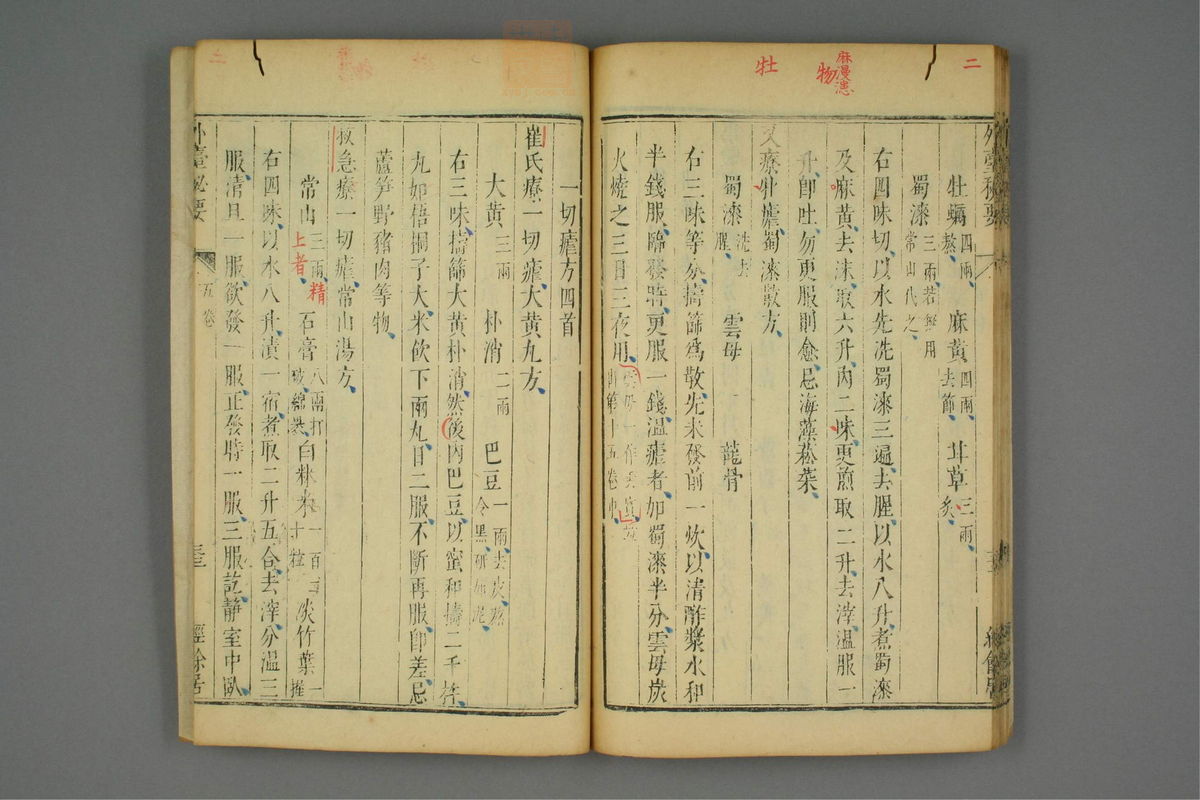 二
麻漫患
物
牡
牡蠣四兩熬、麻黃四兩、去節、甘草三兩、炙、
蜀漆三兩若無用常山代之、
右四味切、以水先洗蜀漆三遍、去腥、以水八升煮蜀漆
及麻黃、去沫、取六升、內二味、更煎取二升、去滓溫服一
升、卽吐、勿更服則愈、忌海藻菘菜、
又療牡瘧蜀漆散方、
蜀漆洗去腥、雲母 龍骨
右三味等分、擣篩爲散、先未發前一炊、以清酢漿水和
半錢服、臨發時、更服一錢、溫瘧者、加蜀漆半分、雲母炭
火燒之三日三夜用、雲母一作雲實
一切瘧方四首
崔氏療一切瘧大黃丸方、
大黃三兩 朴消二兩 巴豆一兩、去皮、熬令黑、研如泥、
右三味、擣篩大黃朴消、然後內巴豆、以蜜和擣二千杵、
丸如梧桐子大、米飲下兩丸、日二服、不斷再服、卽差、忌
蘆笋野豬肉等物、
救急療一切瘧、常山湯方、
常山三兩、精上者、石膏八兩打破、綿裹、白秫米一百二十粒 淡竹葉一握
右四味、以水八升、漬一宿、煮取二升五合、去滓、分溫三
服、清旦一服、欲發一服、正發時一服、三服訖、靜室中臥、
外臺秘要 五卷 經餘居